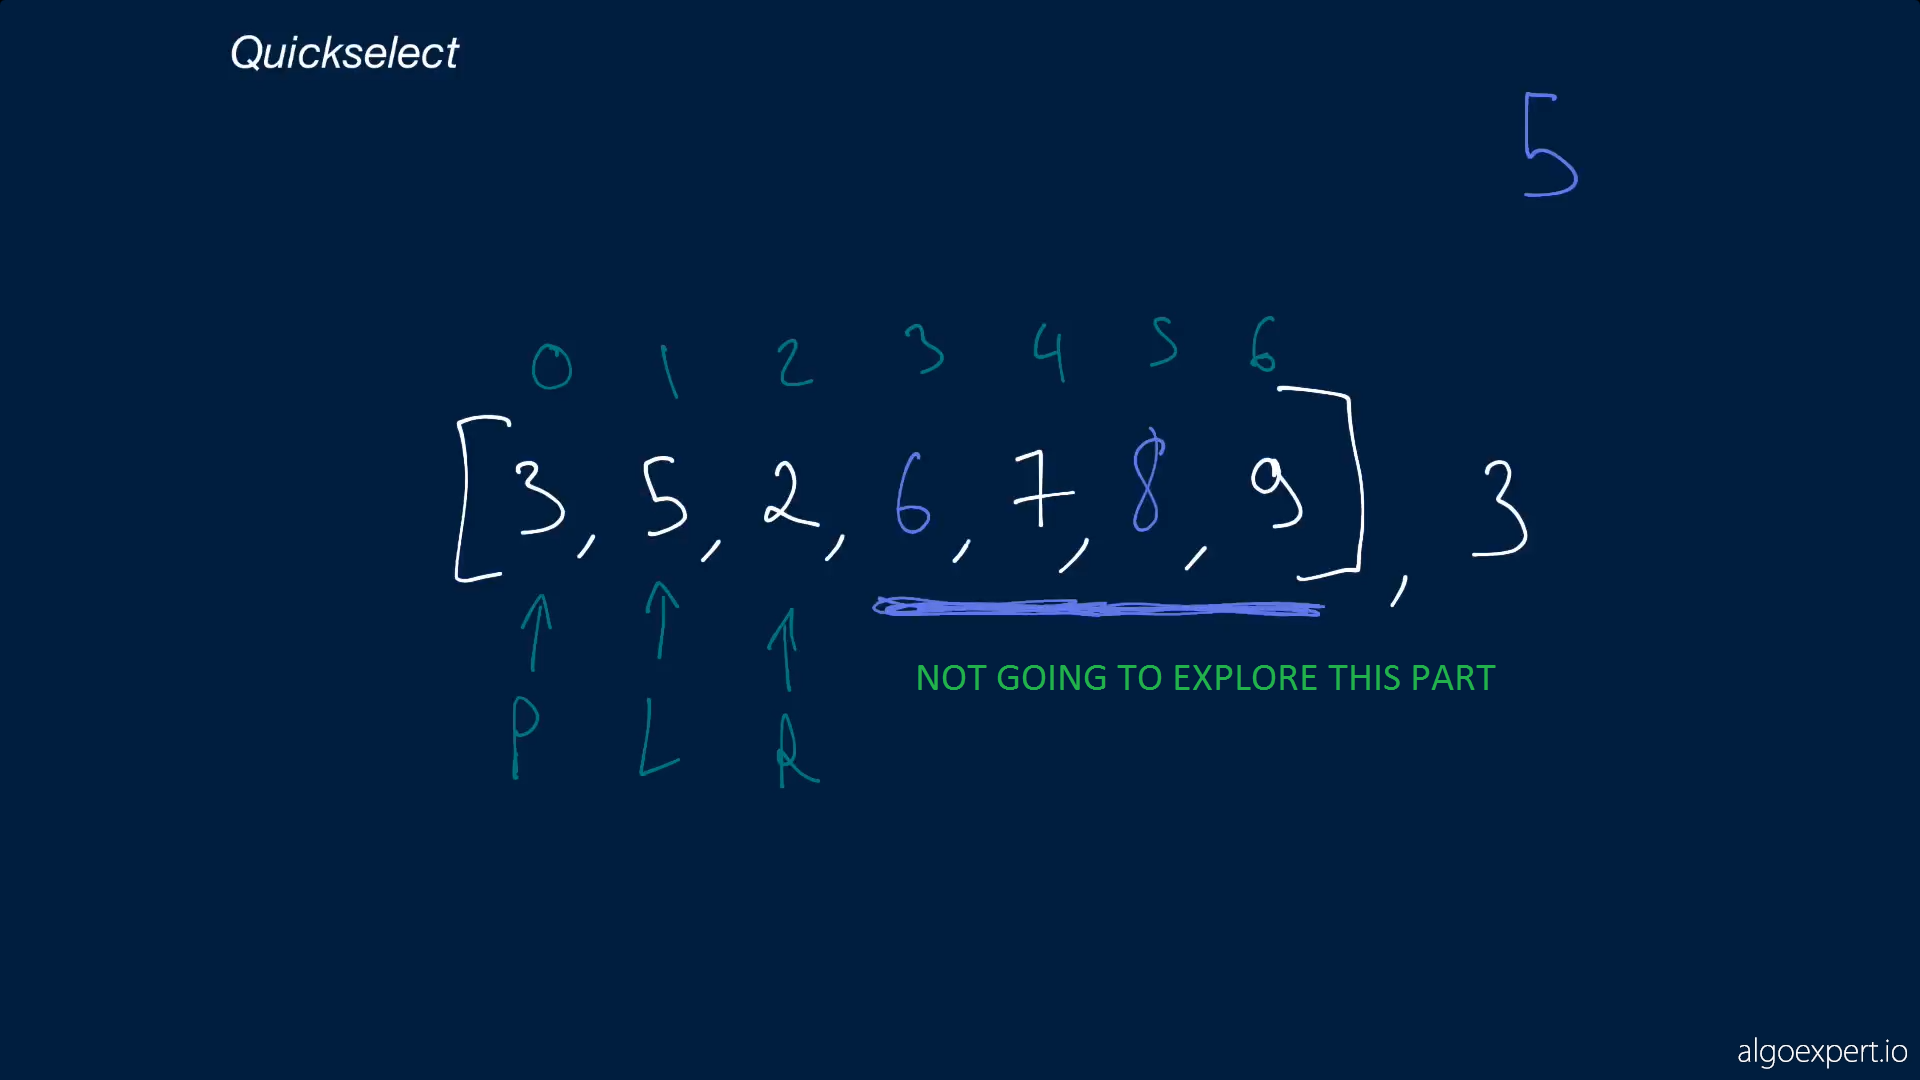 Quickselect
5
0 1 2 3 4 5 6
[3, 5, 2, 6, 7, 8, 9], 3
NOT GOING TO EXPLORE THIS PART
P L R
algoexpert.io